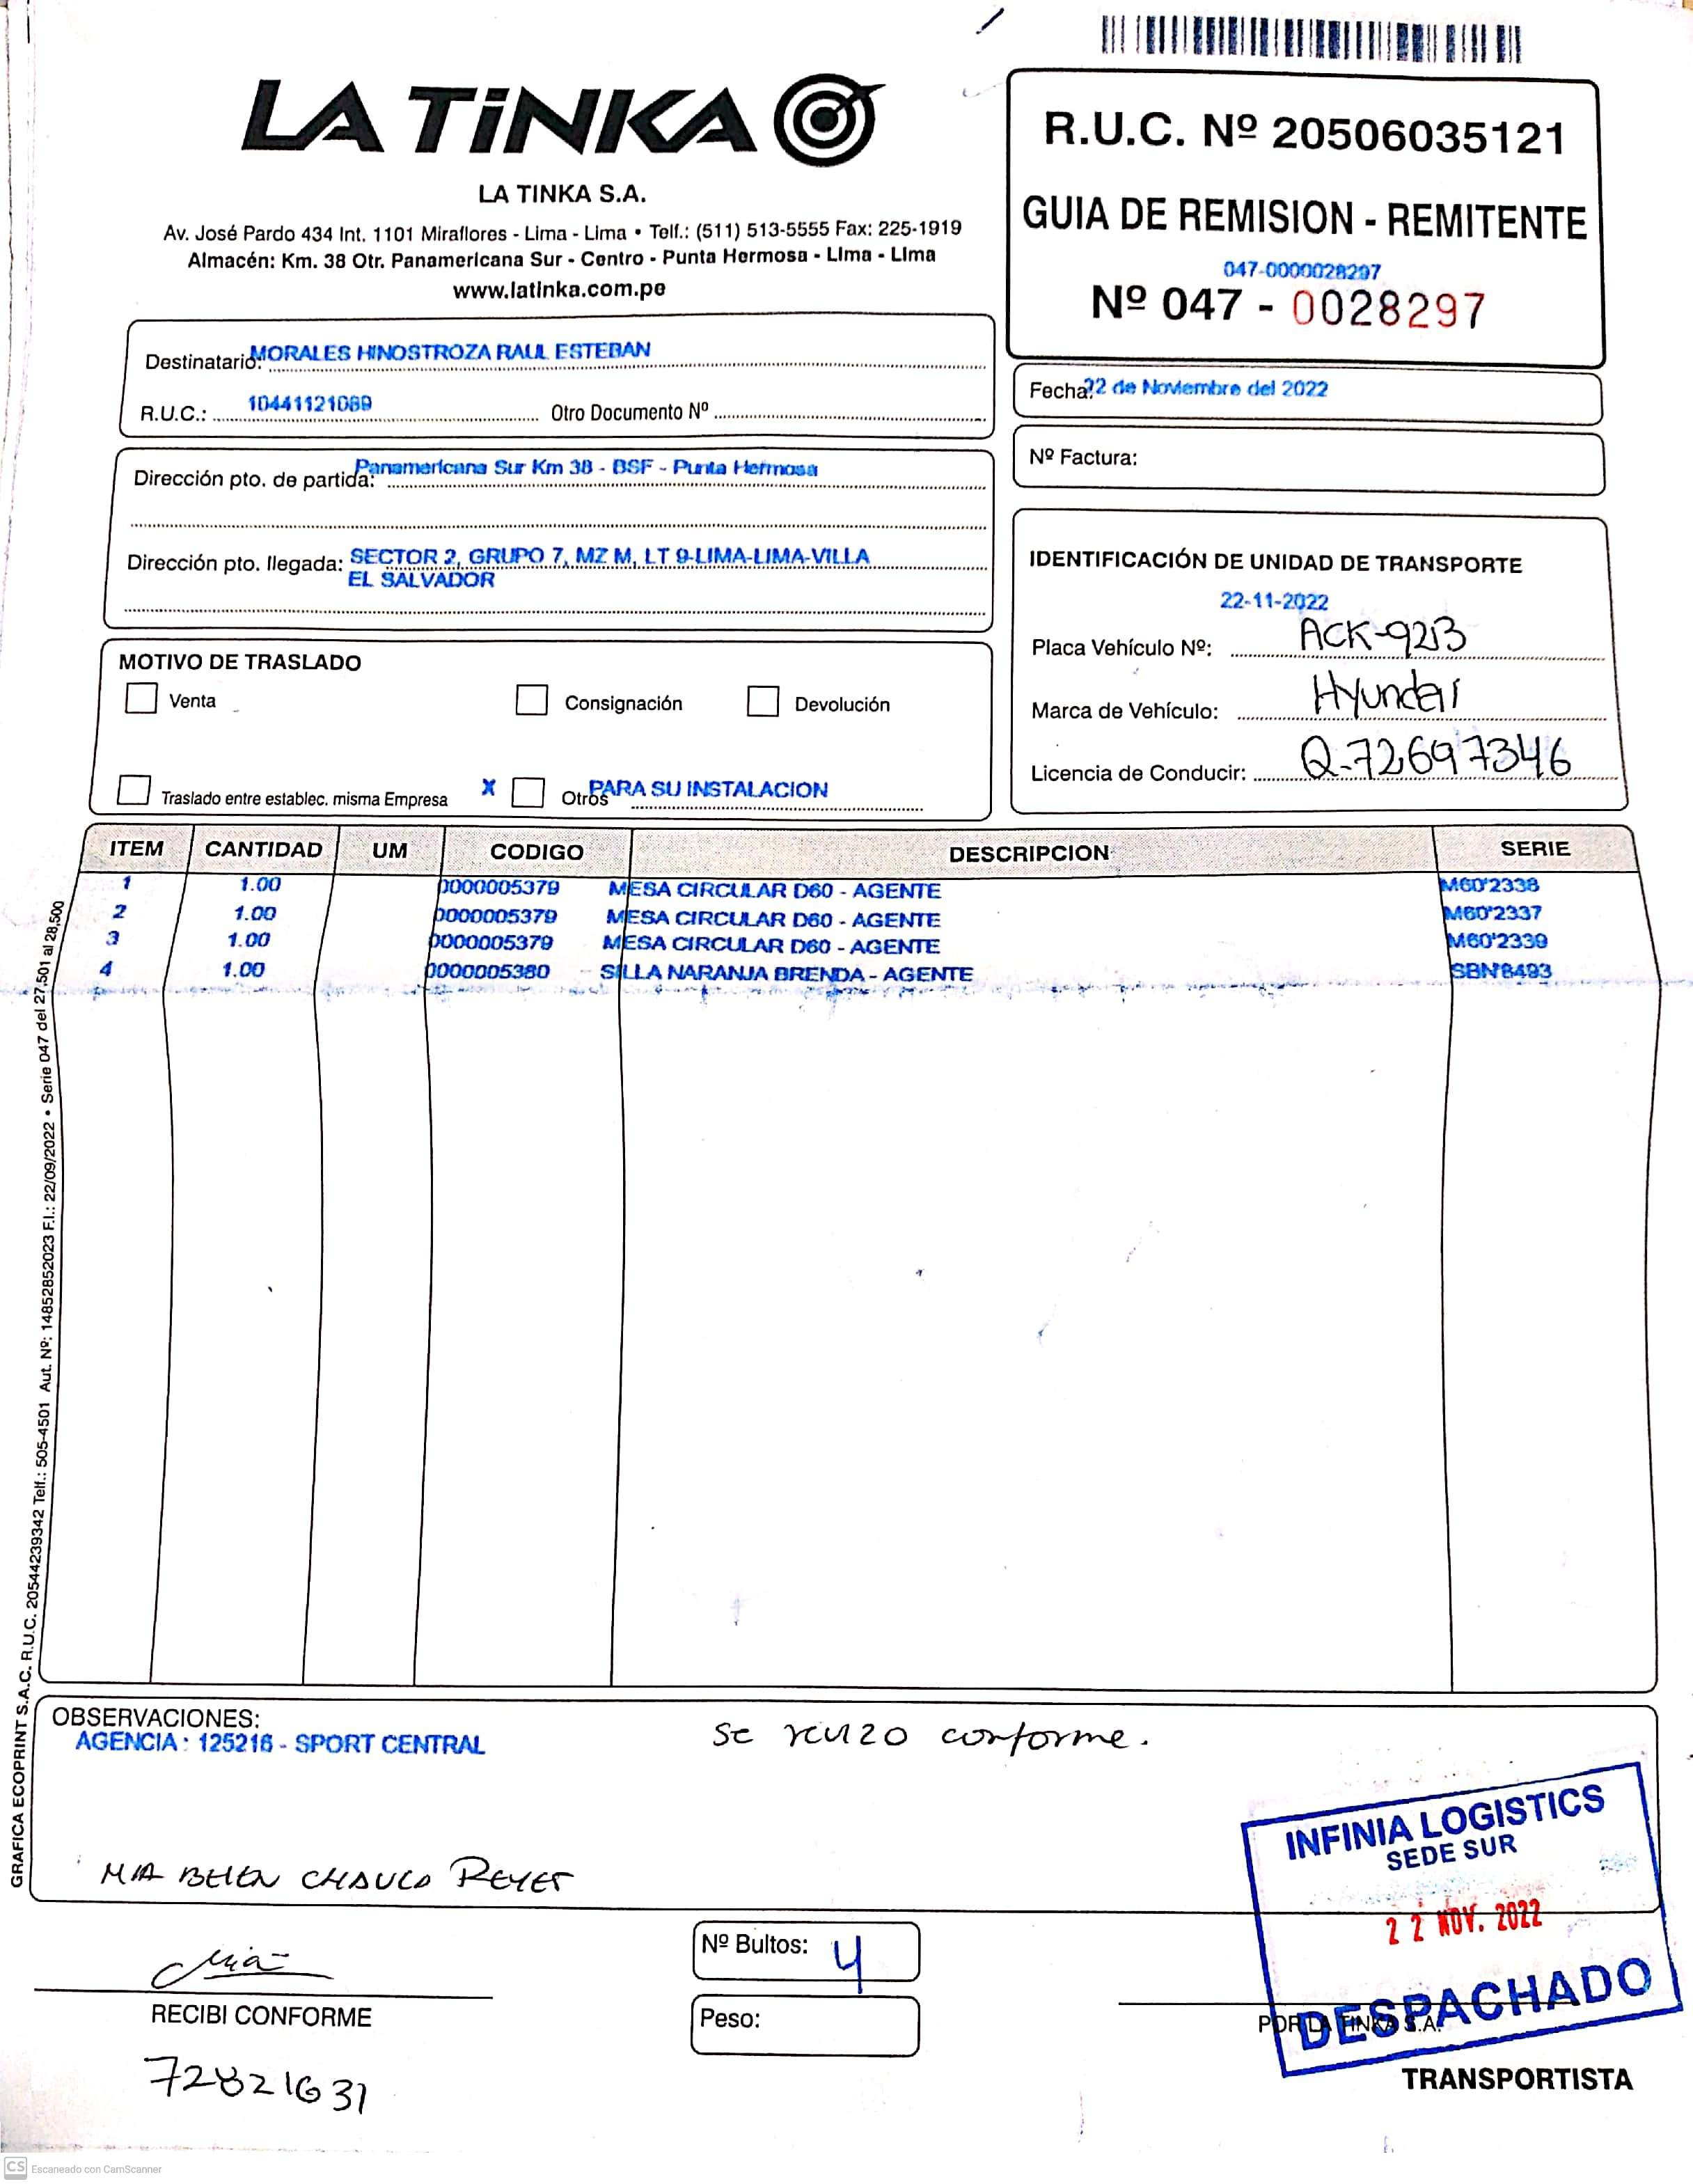 LA TiNKA
LA TINKA S.A.
Av. José Pardo 434 Int. 1101 Miraflores - Lima - Lima • Telf.: (511) 513-5555 Fax: 225-1919
Almacén: Km. 38 Otr. Panamericana Sur - Centro - Punta Hermosa - Lima - Lima
www.latinka.com.pe
R.U.C. Nº 20506035121
GUIA DE REMISION - REMITENTE
047-0000028297
Nº 047 - 0028297
Destinatario: MORALES HINOSTROZA RAUL ESTEBAN
R.U.C.: 10441121089 Otro Documento Nº
Fecha: 22 de Noviembre del 2022
Nº Factura:
Dirección pto. de partida: Panamericana Sur Km 38 - BSF - Punta Hermosa
Dirección pto. llegada: SECTOR 2, GRUPO 7, MZ M, LT 9-LIMA-LIMA-VILLA
EL SALVADOR
IDENTIFICACIÓN DE UNIDAD DE TRANSPORTE
22-11-2022
Placa Vehículo Nº:
Marca de Vehículo: Hyundai
Licencia de Conducir: Q-72697346
MOTIVO DE TRASLADO
Venta Consignación Devolución
Traslado entre establec. misma Empresa X Otros PARA SU INSTALACION
ITEM CANTIDAD UM CODIGO DESCRIPCION SERIE
1 1.00 0000005379 MESA CIRCULAR D60 - AGENTE M60'2338
2 1.00 0000005379 MESA CIRCULAR D60 - AGENTE M60'2337
3 1.00 0000005379 MESA CIRCULAR D60 - AGENTE M60'2339
4 1.00 0000005380 SILLA NARANJA BRENDA - AGENTE SBN'8493
GRAFICA ECOPRINT S.A.C. R.U.C. 20544239342 Telf.: 505-4501 Aut. Nº: 14852852023 F.I.: 22/09/2022 • Serie 047 del 27,501 al 28,500
OBSERVACIONES:
AGENCIA : 125216 - SPORT CENTRAL
se conforme.
INFINIA LOGISTICS
SEDE SUR
22 NOV. 2022
DESPACHADO
MIA BELEN CHAUCA REYES
Mia
RECIBI CONFORME
72821631
Nº Bultos: 4
Peso:
POR LA TINKA S.A.
TRANSPORTISTA
CS Escaneado con CamScanner